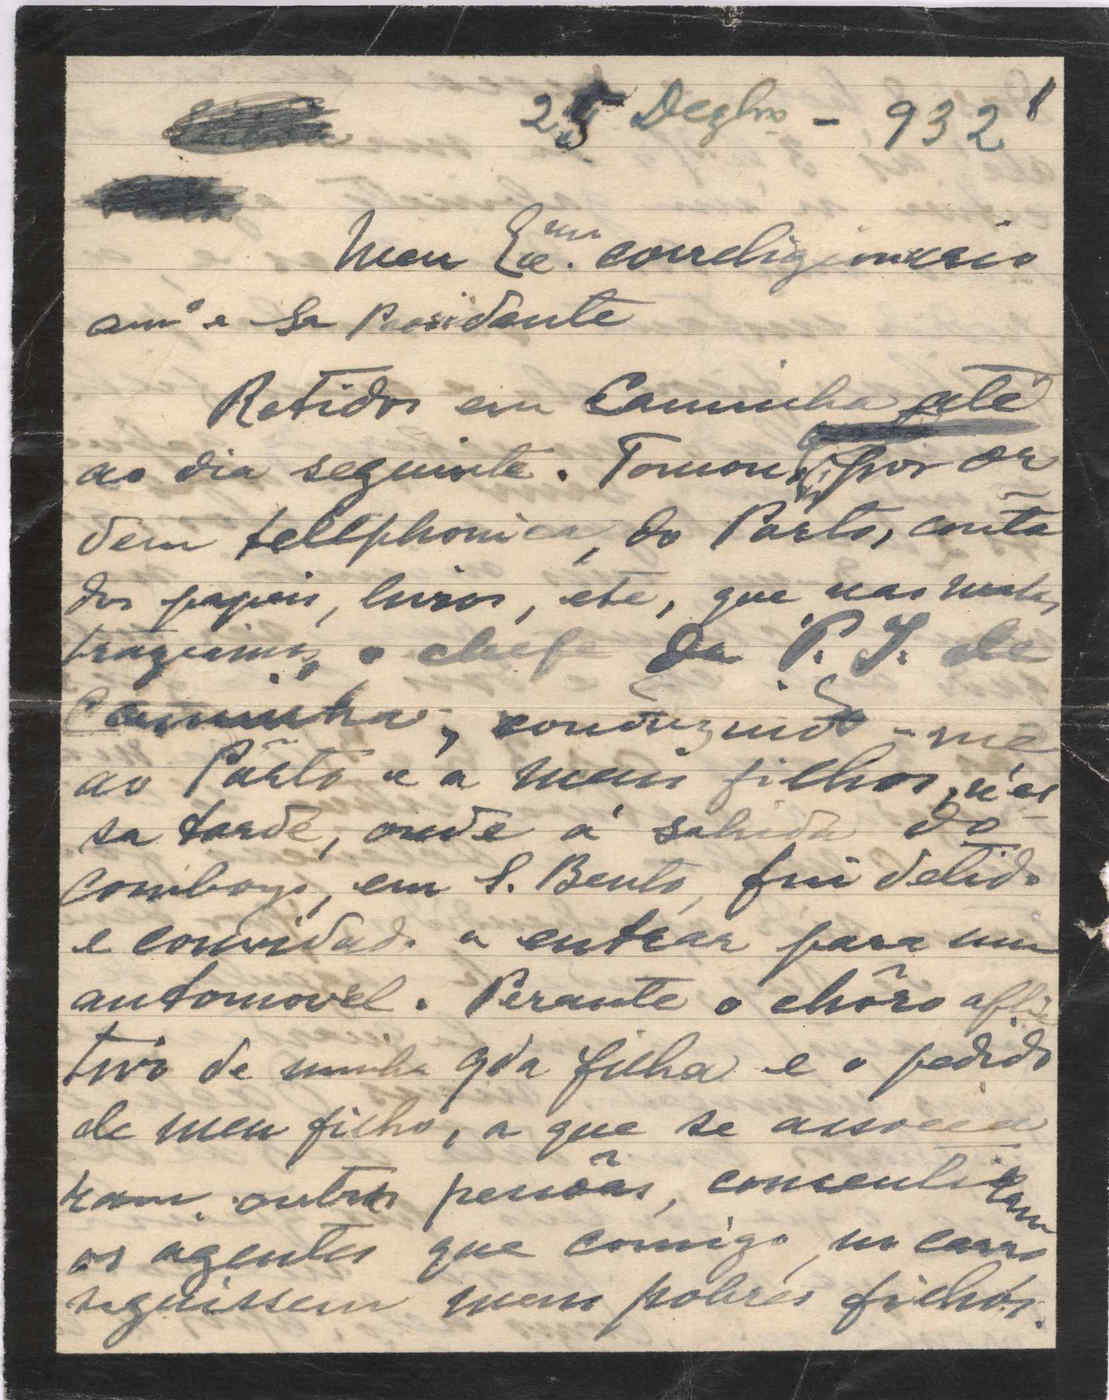 25 Dezbro - 932
Meu Exmo. correligionario
amo e Sr Presidente
Retidos em Caminha até
ao dia seguinte. Tomou, por or
dem tellphonica, do Porto, conta
dos papeis, livros, etc, que nas malas
traziamos, o chefe da P. I. de
Caminha, conduzindo-me
ao Pôrto e a meus filhos, n'es
sa tarde, onde á sahida do
comboyo, em S. Bento, fui detido
e convidado a entrar para um
automovel. Perante o chôro afli
tivo de minha qda filha e o pedido
de meu filho, a que se associa
ram outras pessôas, consentiram
os agentes que comigo, no carro
seguissem meus pobres filhos.